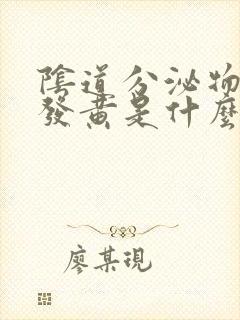 陰道分泌物
發黃是什麼
廖某現